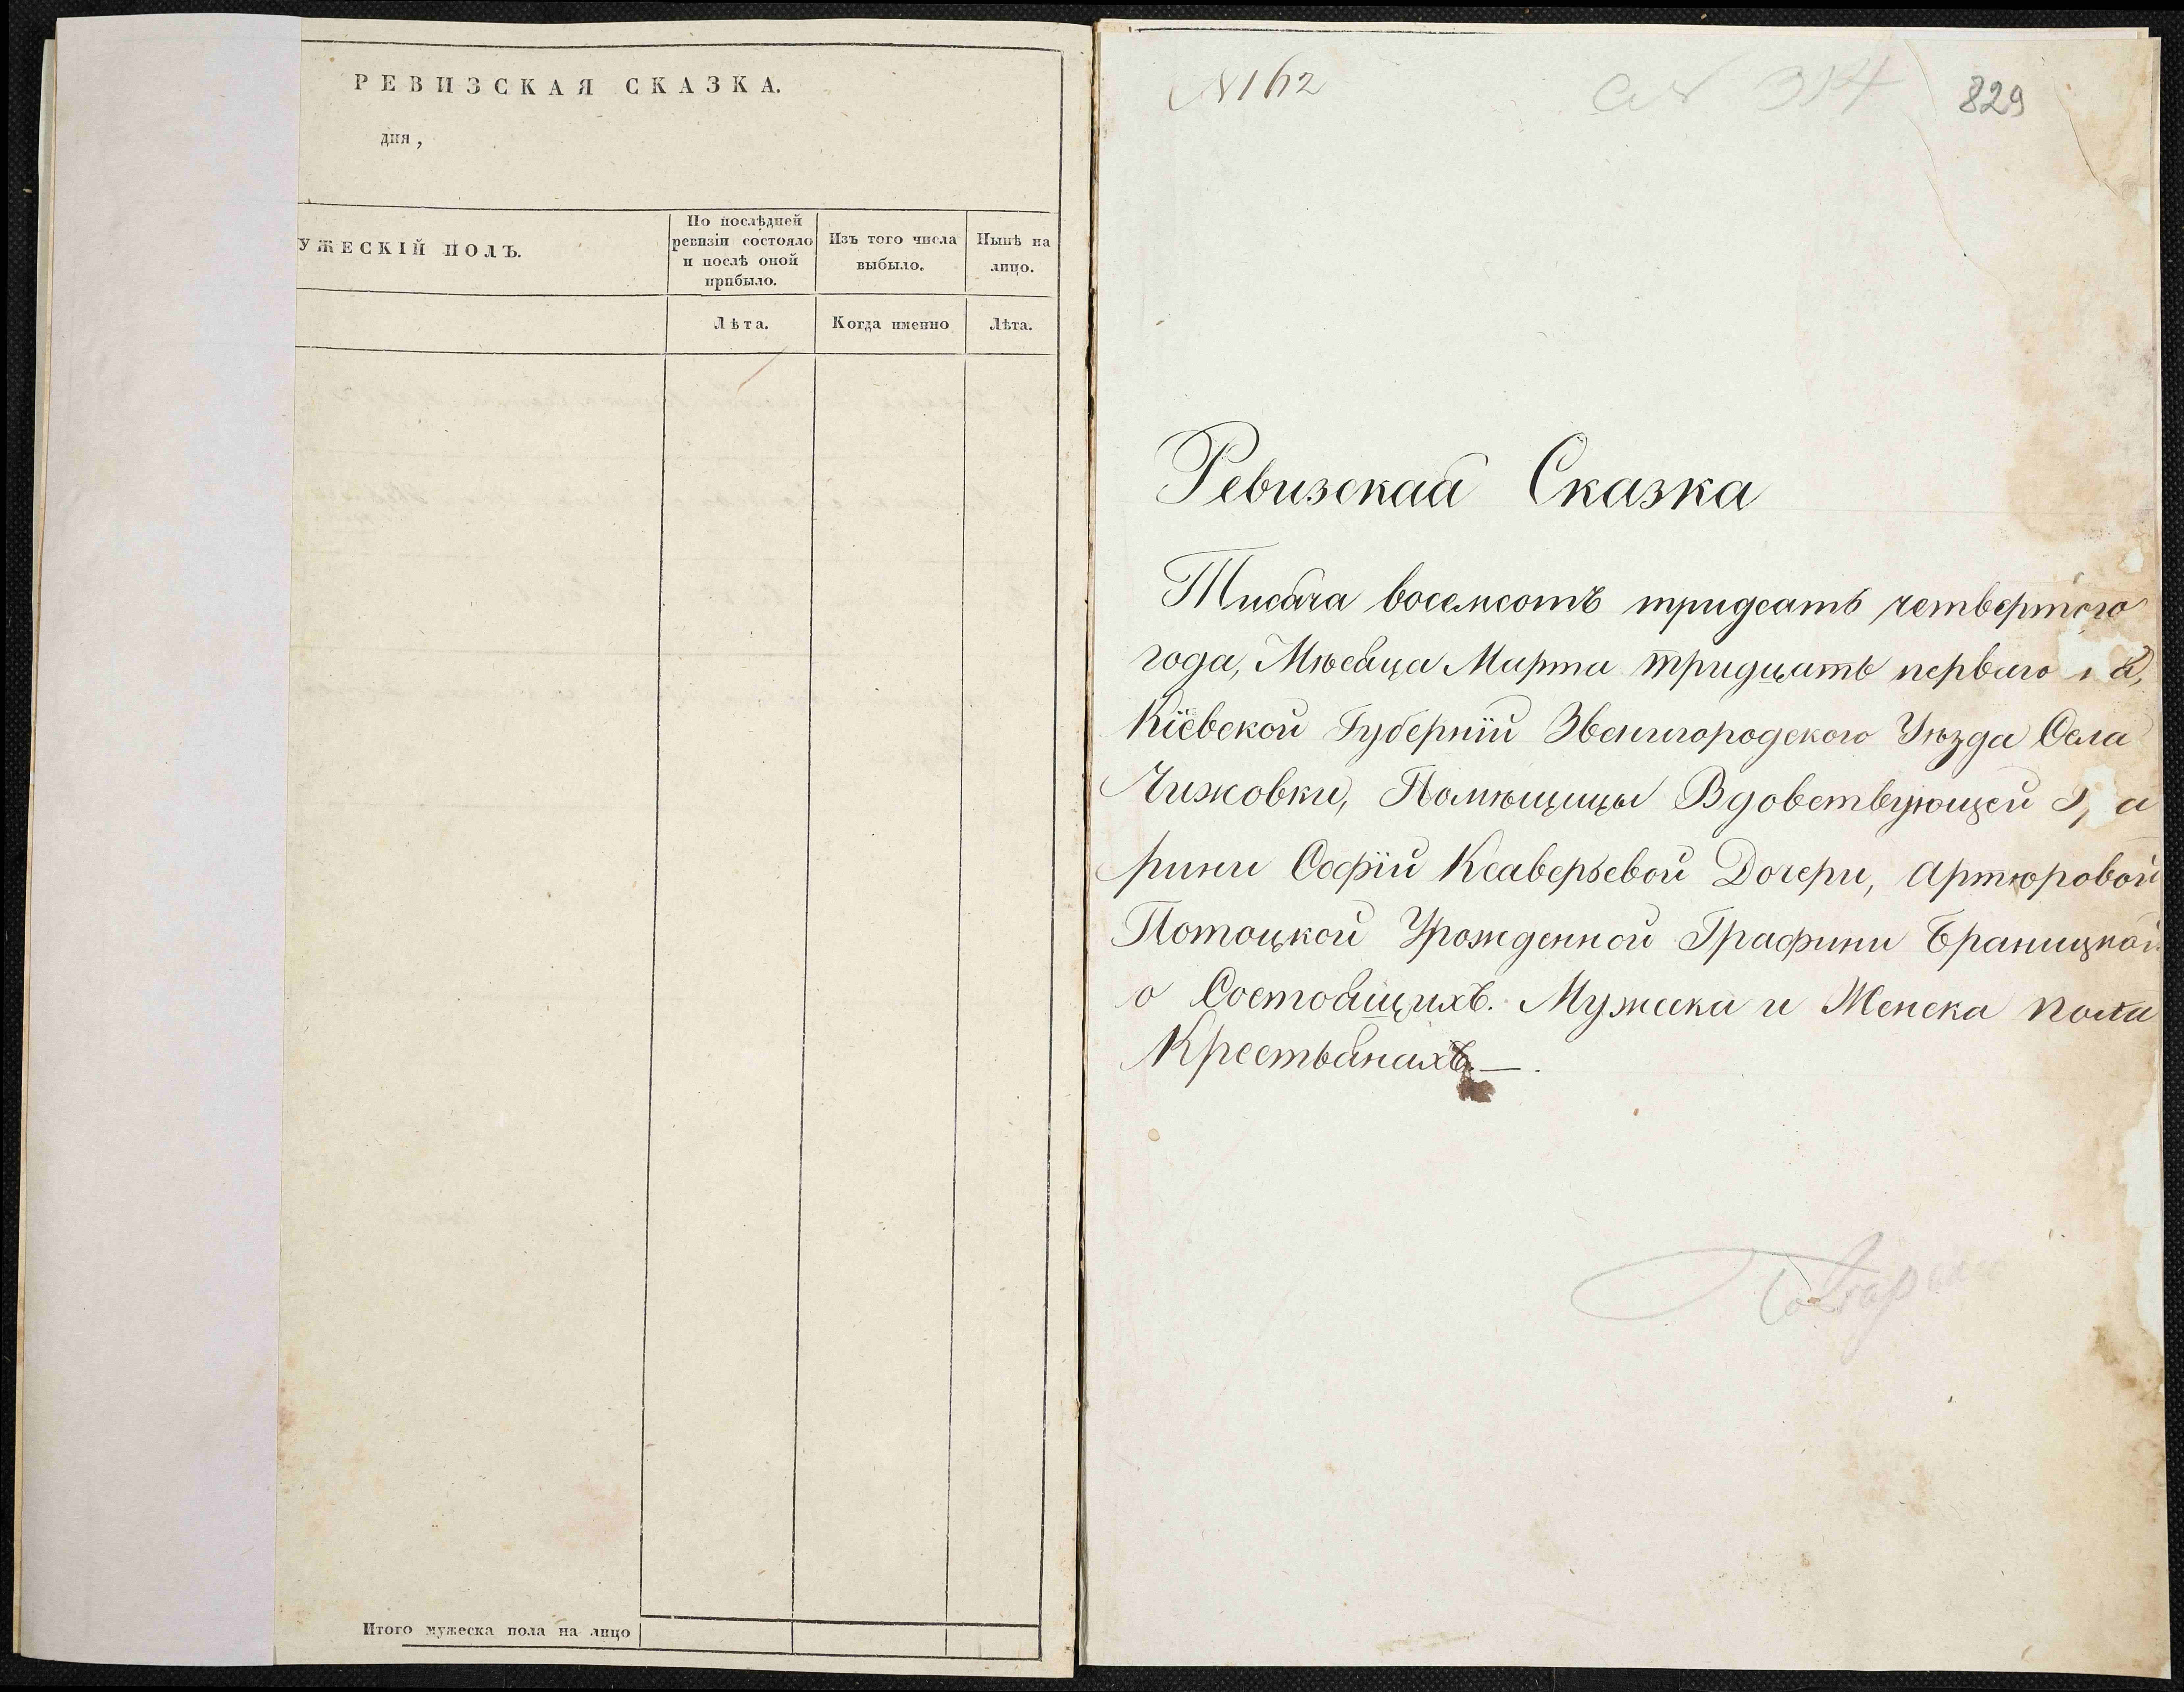 РЕВИЗСКАЯ СКАЗКА.
дня ,
УЖЕСКІЙ ПОЛЪ.
По послѣдней
ревизіи состояло
и послѣ оной
прибыло.
Изъ того числа
выбыло.
Нынѣ на
лицо.
Лѣта.
Когда именно
Лѣта.
Итого мужеска пола на лицо
№ 162
829
Ревизская Сказка
Тисяча восемсотъ тридсать четвертого
года, Мѣсяца Марта тридцать первого
Кіевской Губерніи Звенигородского Уѣзда Села
Чижовки, Помѣщицы Вдовствующей
рини Софіи Ксаверьевой Дочери, Артюровой
Потоцкой Урожденной Графини Браницкой
о Состоящихъ. Мужеска и Женска пола
Крестьянахъ. —.